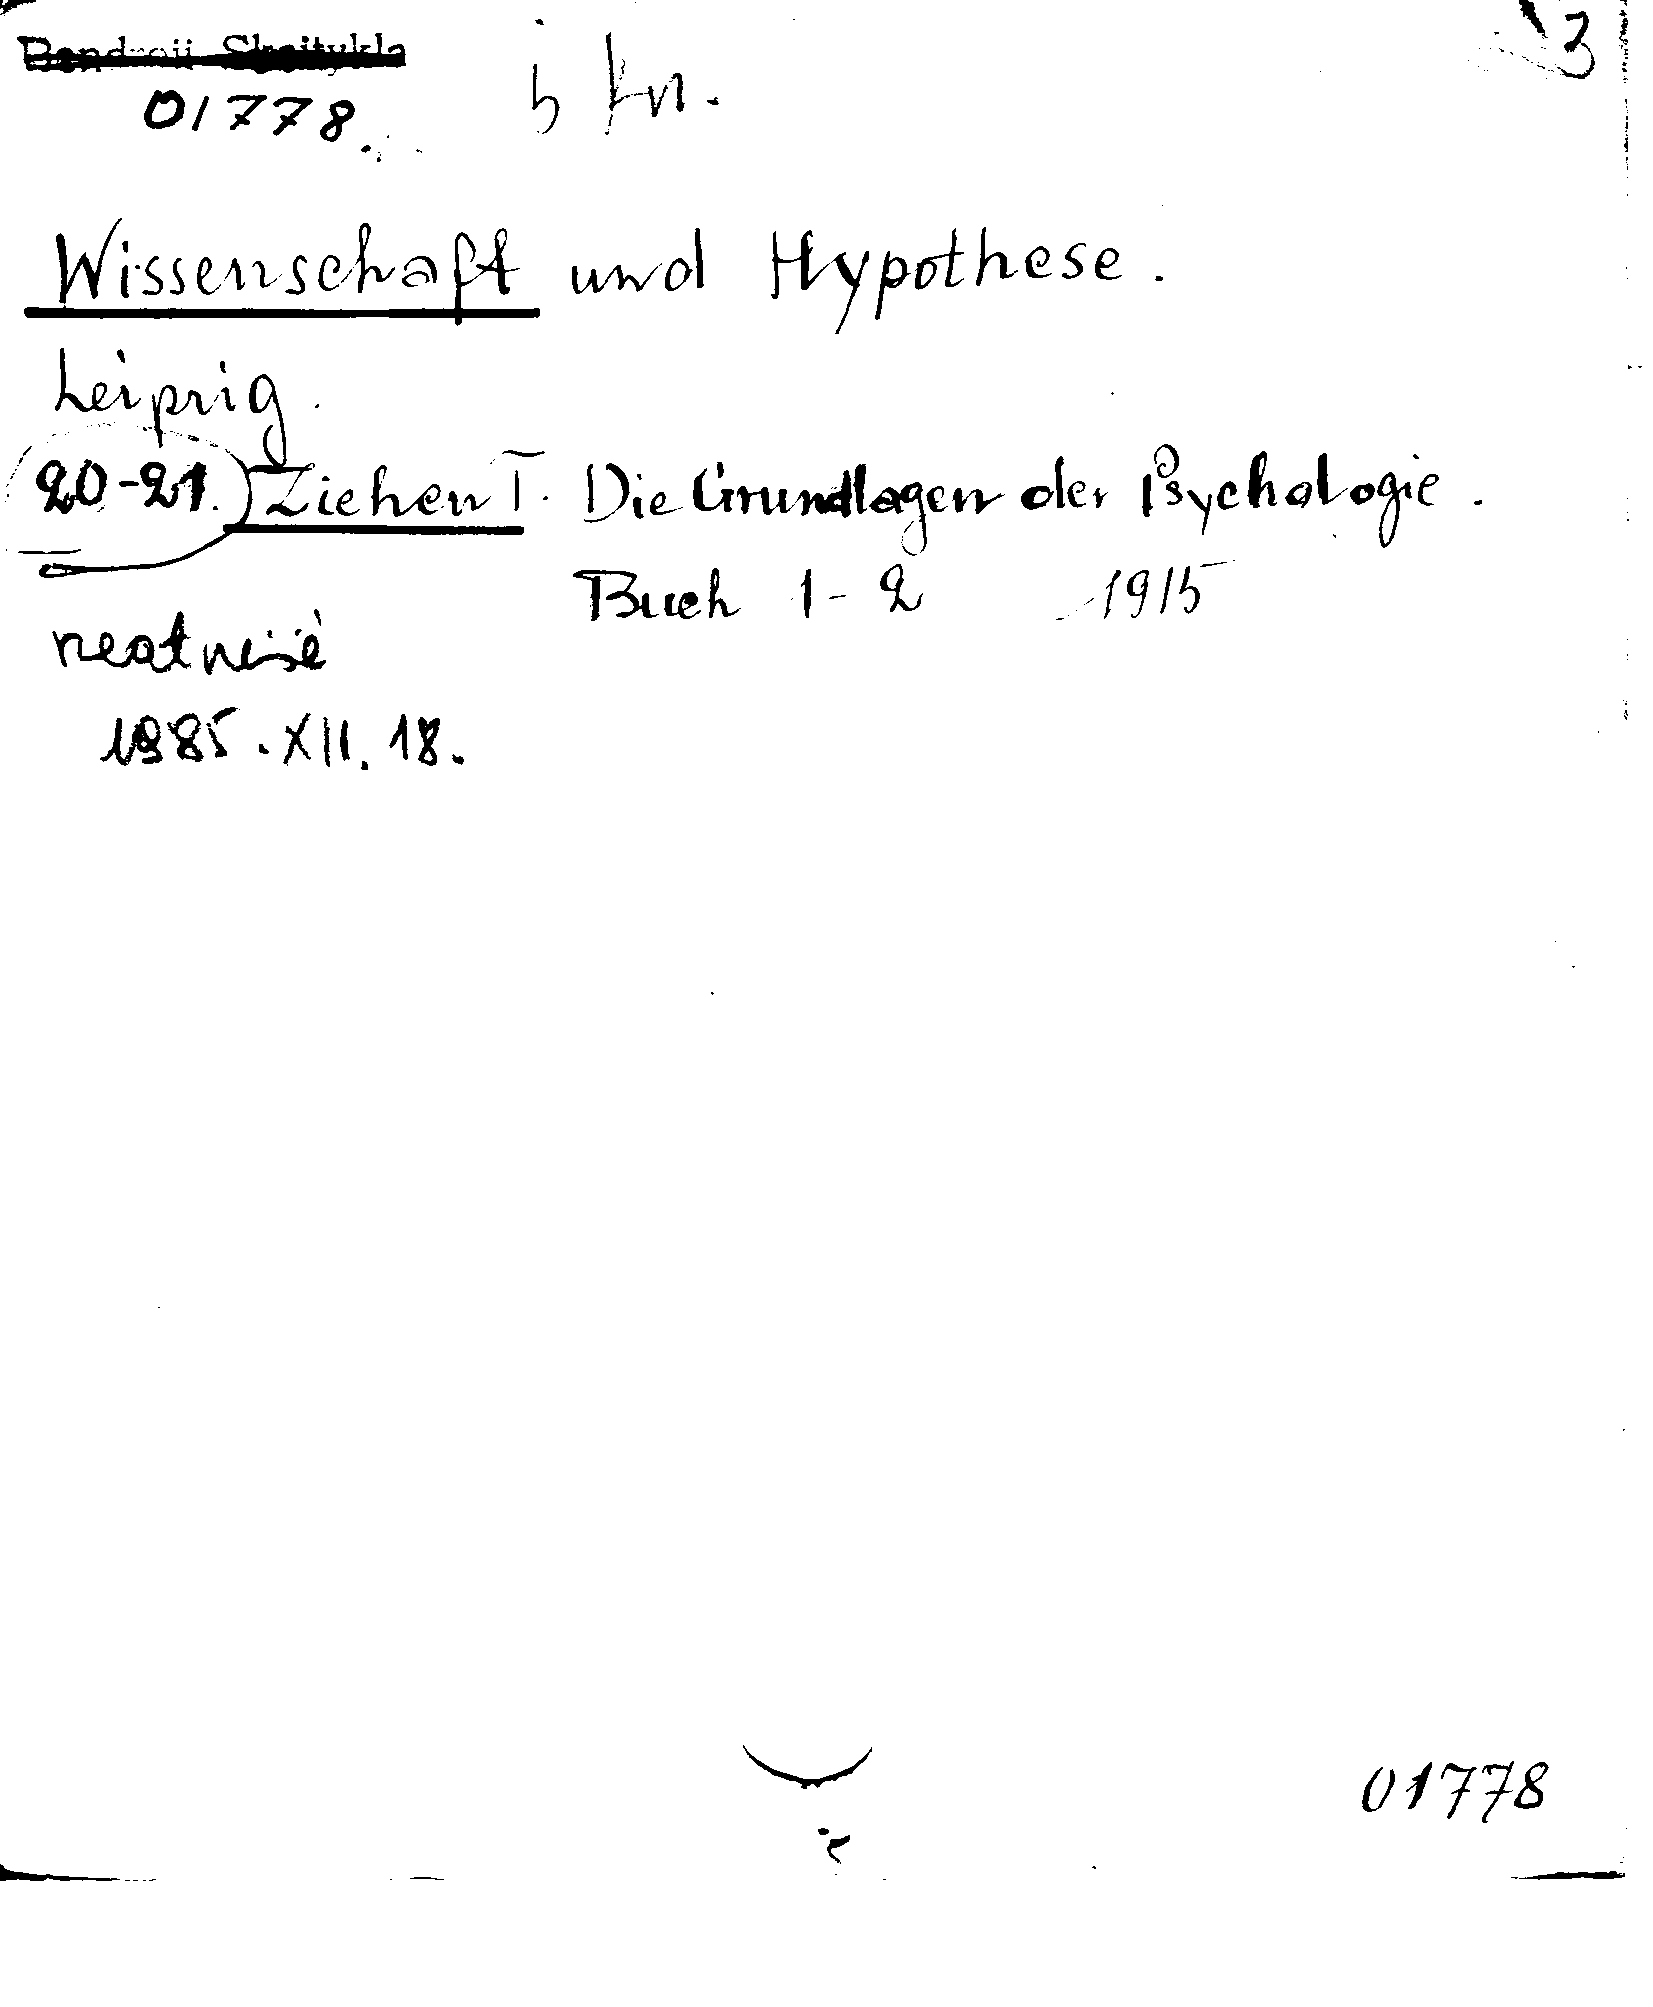 Bendroji Skaitykla
01778. 5 kn. 3
Wissenschaft und Hypothese.
Leipzig.
20-21. Ziehen T. Die Grundlagen der Psychologie.
Buch 1-2 1915
neatnešė
1985.XII.18.
01778